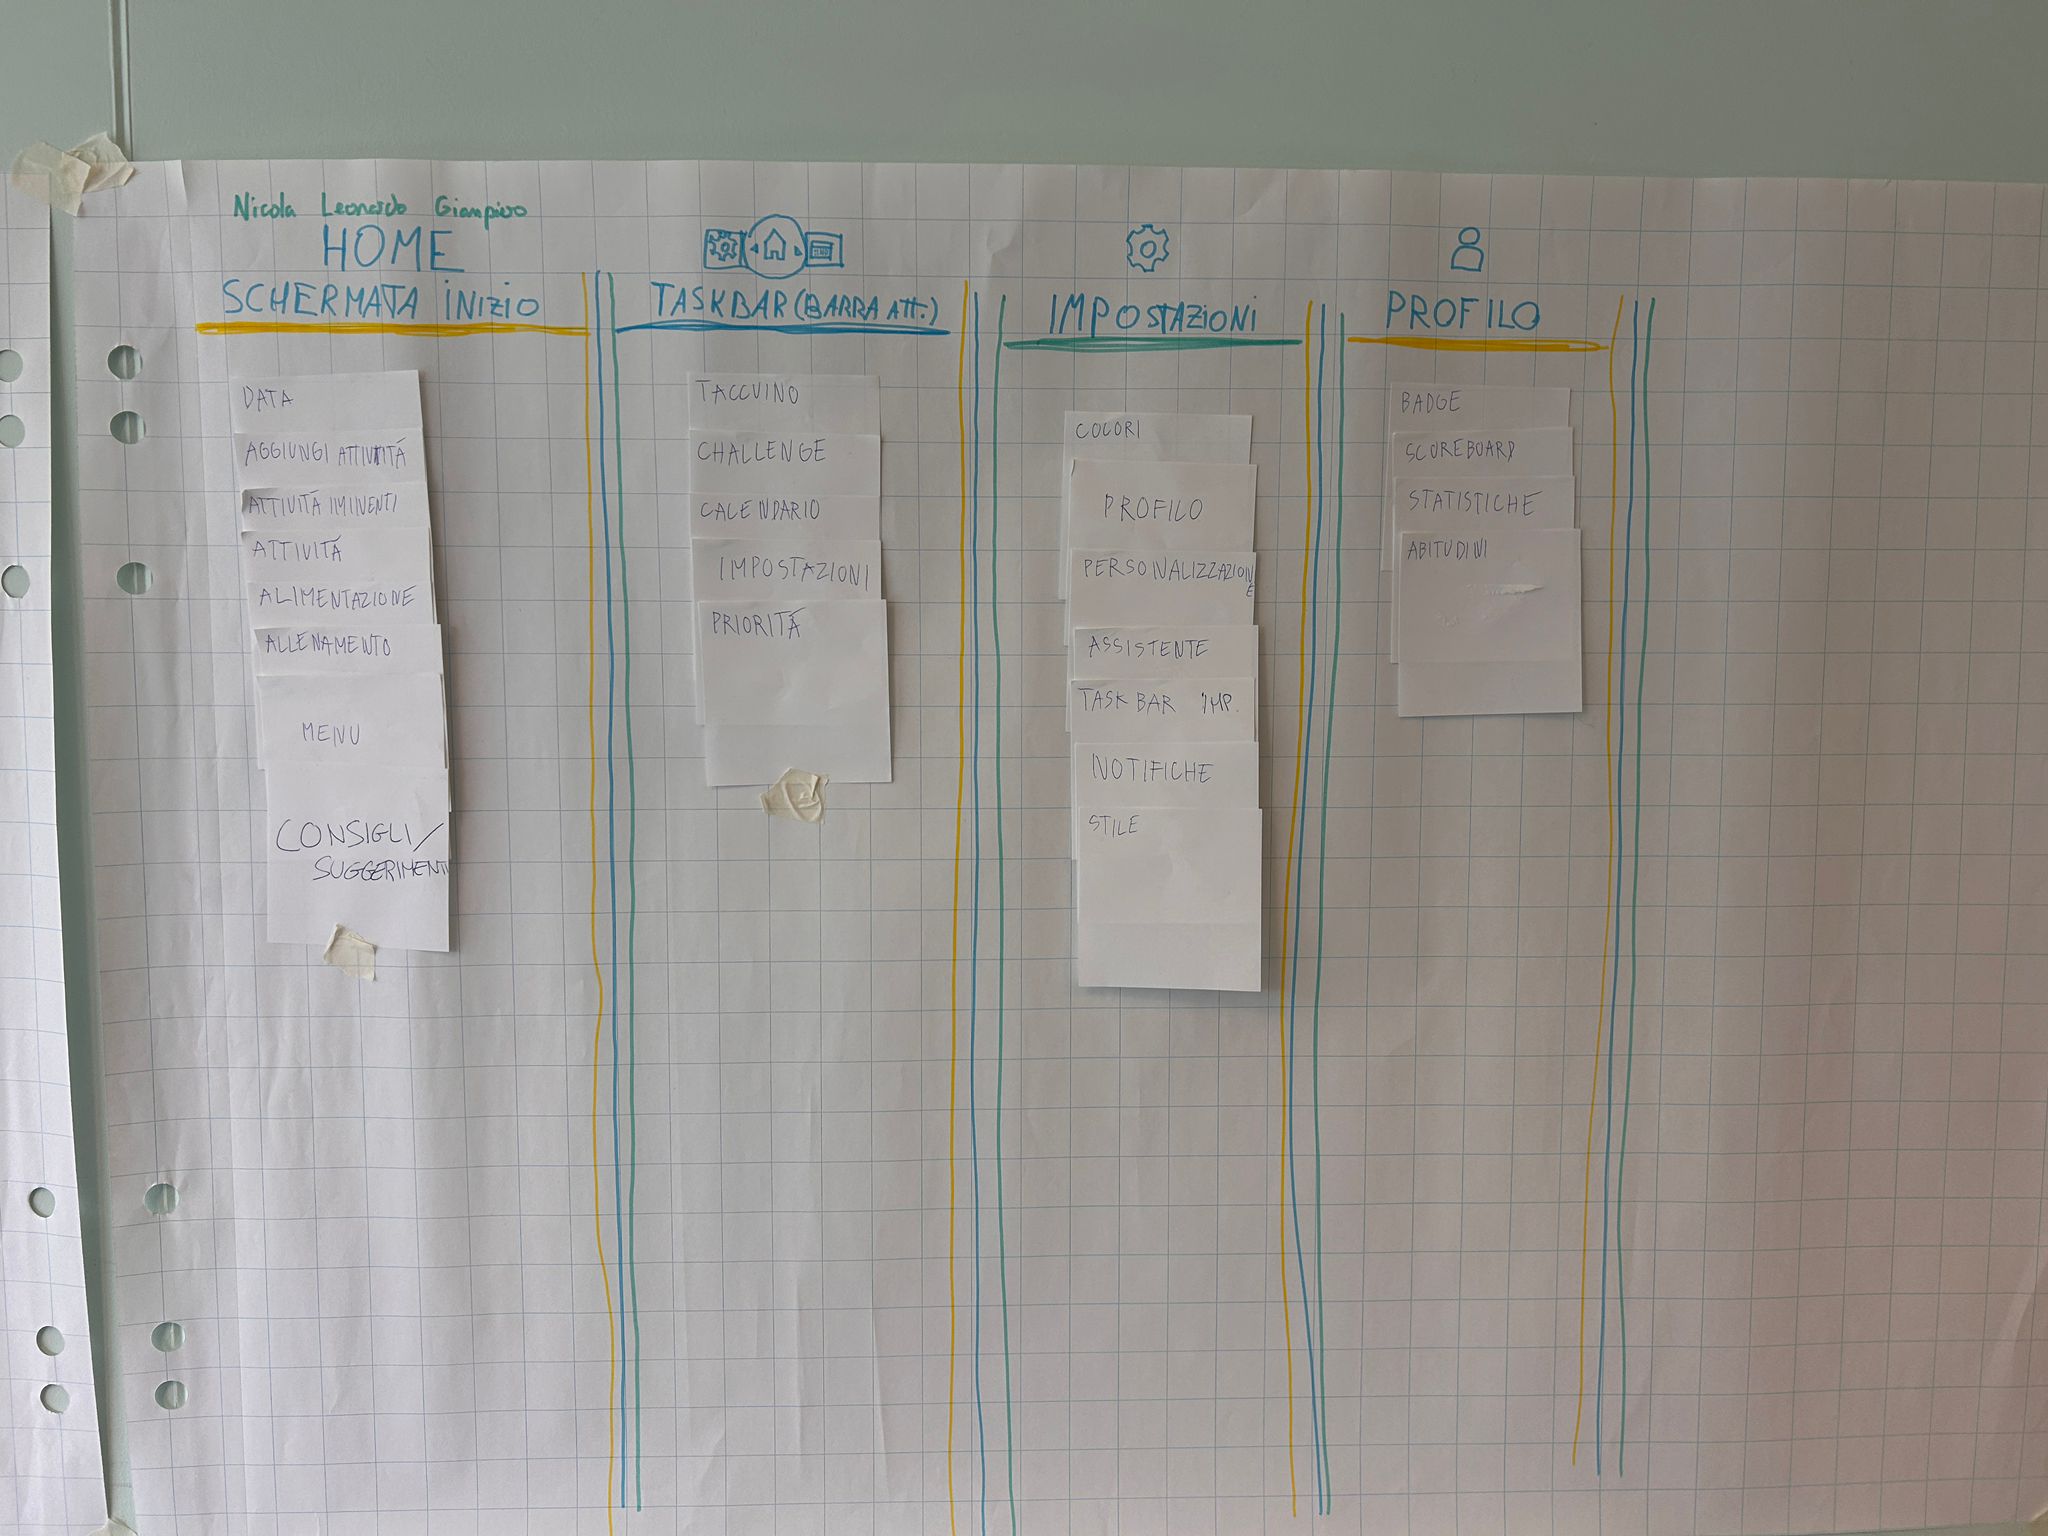 Nicola Leonardo Giampiero
HOME
SCHERMATA INIZIO
DATA
AGGIUNGI ATTIVITÁ
ATTIVITÁ IMINENTI
ATTIVITÁ
ALIMENTAZIONE
ALLENAMENTO
MENU
CONSIGLI/
SUGGERIMENTI
TASKBAR (BARRA ATT.)
TACCUINO
CHALLENGE
CALENDARIO
IMPOSTAZIONI
PRIORITÁ
IMPOSTAZIONI
COLORI
PROFILO
PERSONALIZZAZIONE
ASSISTENTE
TASK BAR IMP.
NOTIFICHE
STILE
PROFILO
BADGE
SCOREBOARD
STATISTICHE
ABITUDINI